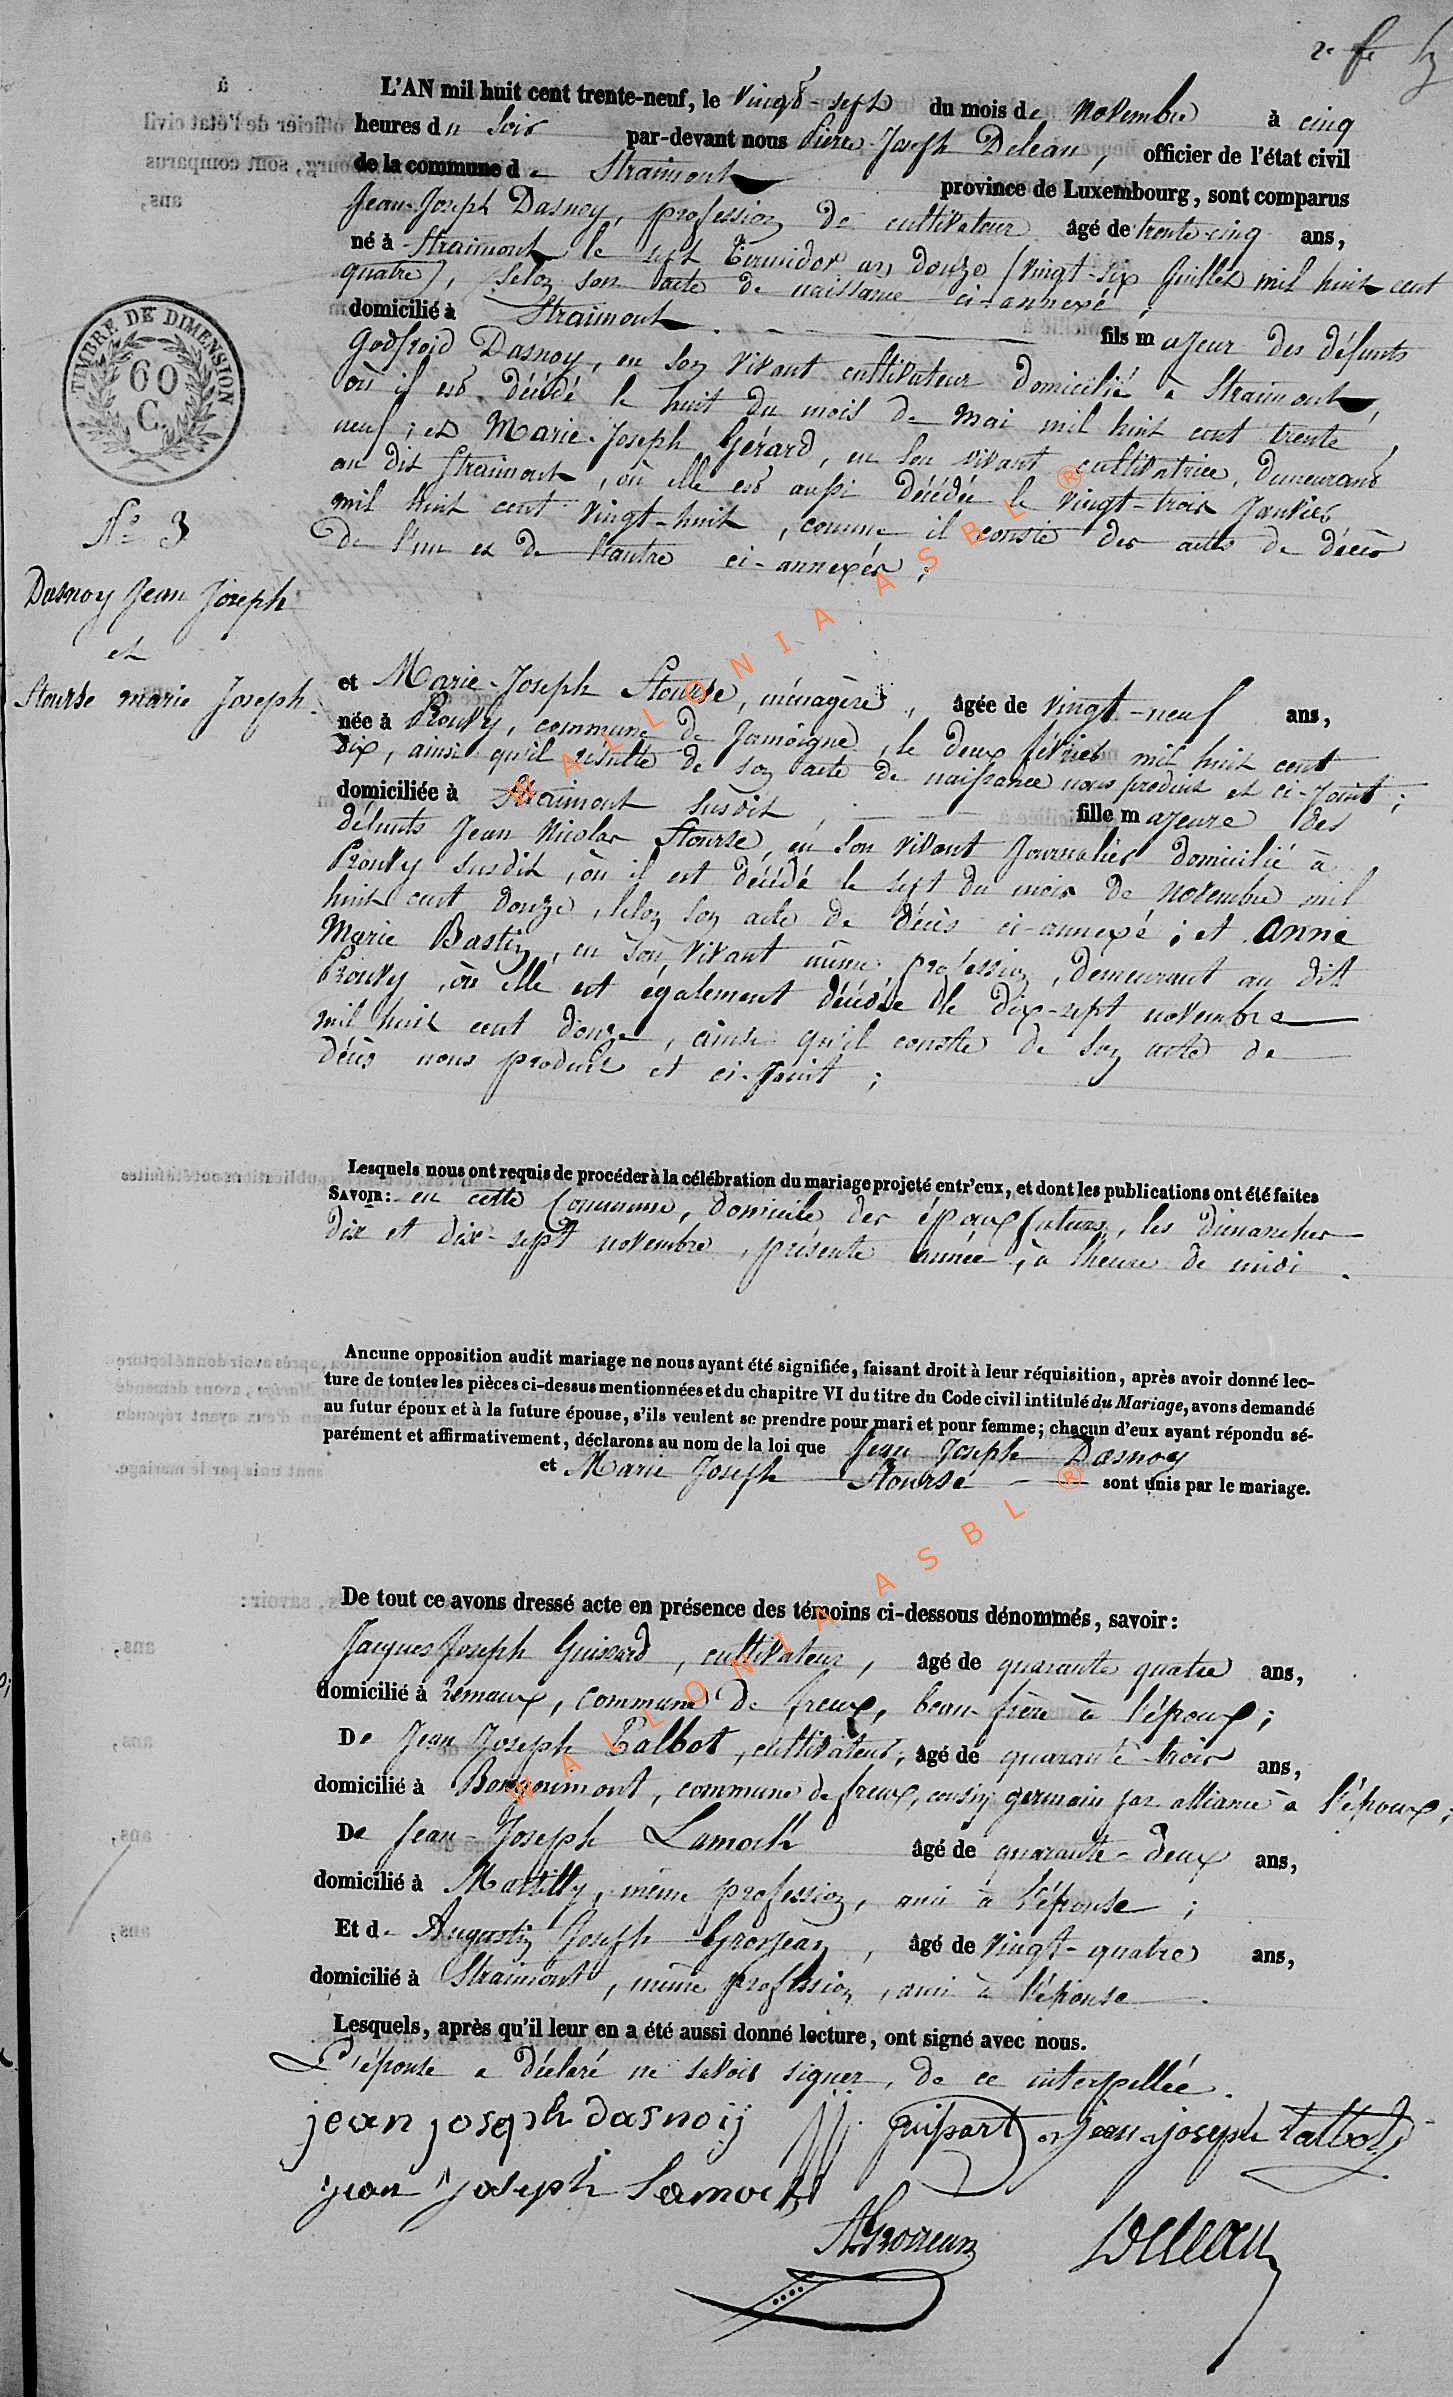 2e fe
L'AN mil huit cent trente-neuf, le vingt-sept du mois de novembre à cinq
heures du soir par-devant nous Pierre-Joseph Deleau, officier de l'état civil
de la commune de Straimont province de Luxembourg, sont comparus
Jean-Joseph Dasnoy, profession de cultivateur âgé de trente-cinq ans,
né à Straimont le sept Termidor an douze (vingt-six Juillet mil huit cent
quatre), selon son acte de naissance ci-annexé,
domicilié à Straimont fils majeur des défunts
Godfroid Dasnoy, en son vivant cultivateur domicilié à Straimont,
où il est décédé le huit du mois de mai mil huit cent trente
neuf; et Marie-Joseph Gérard, en son vivant cultivatrice, demeurant
au dit Straimont, où elle est aussi décédée le vingt-trois Janvier
mil huit cent vingt-huit, comme il conste des actes de décès
De l'un et de l'autre ci-annexés;
TIMBRE DE DIMENSION
60
C.
No 3
Dasnoy Jean Joseph
et
Stourbe marie Joseph
et Marie-Joseph Stourbe, ménagère, âgée de vingt-neuf ans,
née à Prouvy, commune de Jamoigne, le deux février mil huit cent
dix, ainsi qu'il résulte de son acte de naissance nous produit et ci-joint;
domiciliée à Straimont susdit, fille majeure des
défunts Jean Nicolas Stourbe, en son vivant Journalier domicilié à
Prouvy susdit, où il est décédé le sept du mois de novembre mil
huit cent douze, selon son acte de décès ci-annexé; et Anne
Marie Bastin, en son vivant même profession, demeurant au dit
Prouvy, où elle est également décédée le dix-sept novembre
mil huit cent douze, ainsi qu'il conste de son acte de
décès nous produit et ci-joint;
Lesquels nous ont requis de procéder à la célébration du mariage projeté entr'eux, et dont les publications ont été faites
SAVOIR: en cette Commune, domicile des époux futurs, les dimanches
dix et dix-sept novembre, présente année, à l'heure de midi.
Ancune opposition audit mariage ne nous ayant été signifiée, faisant droit à leur réquisition, après avoir donné lec-
ture de toutes les pièces ci-dessus mentionnées et du chapitre VI du titre du Code civil intitulé du Mariage, avons demandé
au futur époux et à la future épouse, s'ils veulent se prendre pour mari et pour femme; chacun d'eux ayant répondu sé-
parément et affirmativement, déclarons au nom de la loi que Jean Joseph Dasnoy
et Marie Joseph Stourbe sont unis par le mariage.
De tout ce avons dressé acte en présence des témoins ci-dessous dénommés, savoir:
Jacques Joseph Guissard, cultivateur, âgé de quarante quatre ans,
domicilié à Remaux, commune de freux, beau-frère à l'époux;
De Jean Joseph Talbot, cultivateur, âgé de quarante-trois ans,
domicilié à Bonnoumont, commune de freux, cousin germain par alliance à l'époux;
De Jean-Joseph Lamock âgé de quarante-deux ans,
domicilié à Martilly, même profession, ami à l'épouse;
Et de Augustin Joseph Grosjean, âgé de vingt-quatre ans,
domicilié à Straimont, même profession, ami à l'épouse.
Lesquels, après qu'il leur en a été aussi donné lecture, ont signé avec nous.
L'épouse a déclaré ne savoir signer, de ce interpellée.
jean joseph dasnoij JJ guissart jean joseph talbot
jean joseph Lamock
AJGrosjean Deleau
WALLONIA ASBL ®
WALLONIA ASBL ®